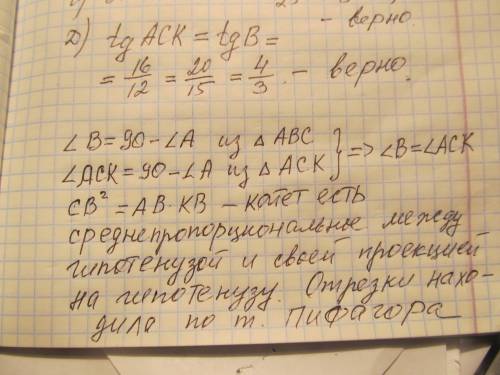 - верно.
Д) tg ACK = tg B =
= 16/12 = 20/15 = 4/3. - верно.
∠B = 90 - ∠A из △ ABC
∠ACK = 90 - ∠A из △ ACK } => ∠B = ∠ACK
CB² = AB · KB - катет есть
среднепропорциональное между
гипотенузой и своей проекцией
на гипотенузу. Отрезки нахо-
дила по т. Пифагора